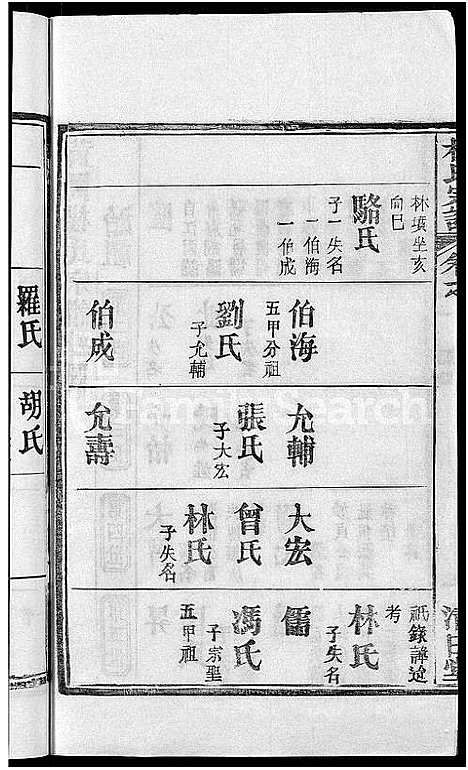 林填坐亥
向巳
駱氏
子一失名
一伯海
一伯成
伯海
五甲分祖
劉氏
子允輔
伯成
允輔
張氏
子大宏
允壽
大宏
曾氏
林氏
子失名
祇錄諱迨
考
林氏
子失名
儒
馮氏
子宗聖
五甲祖
羅氏
胡氏
FamilySearch